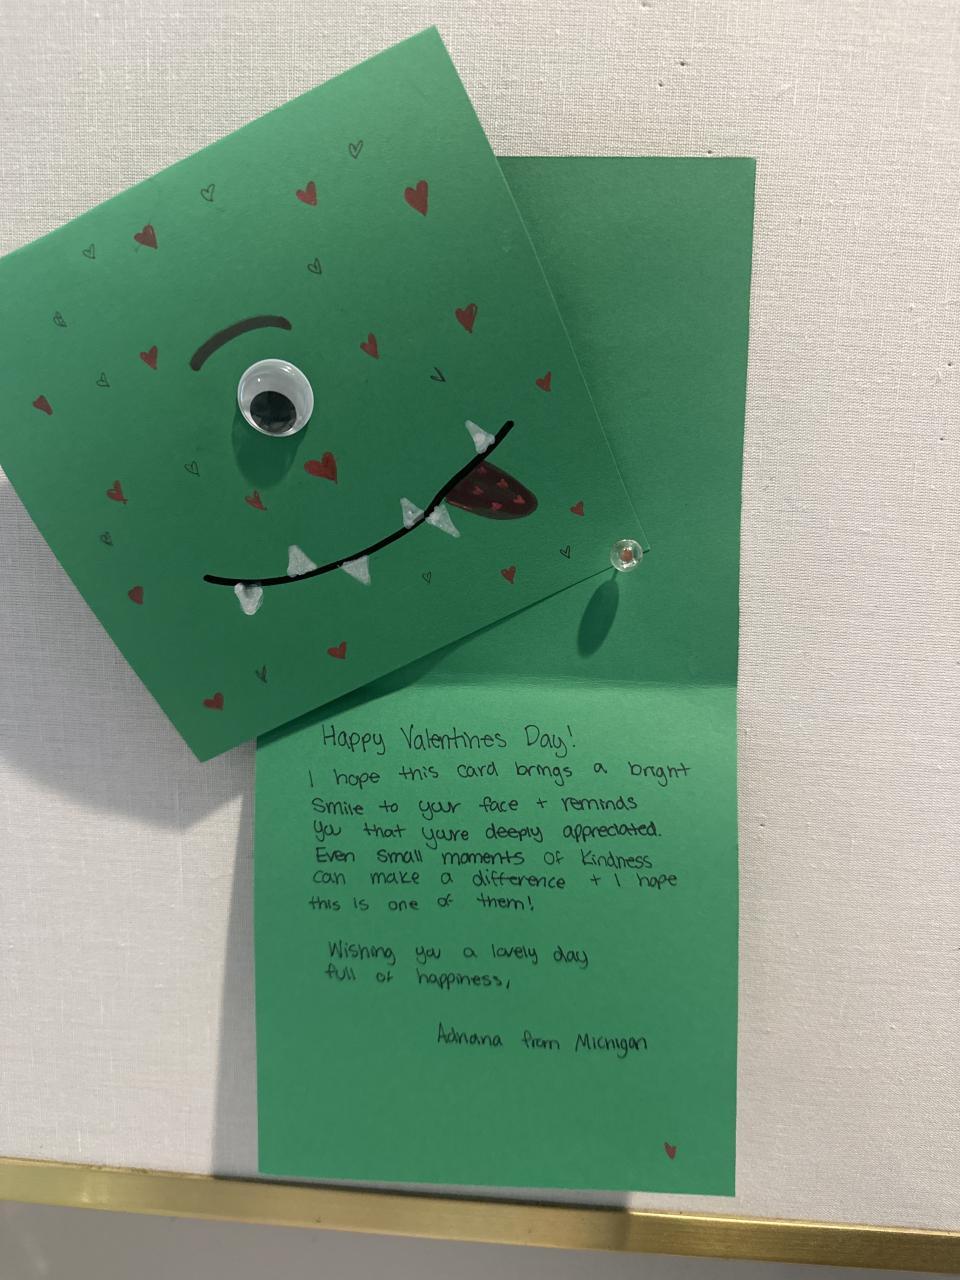 Happy Valentines Day!
I hope this card brings a bright
smile to your face + reminds
you that youre deeply appreciated.
Even small moments of kindness
can make a difference + I hope
this is one of them!
Wishing you a lovely day
full of happiness,
Adriana from Michigan